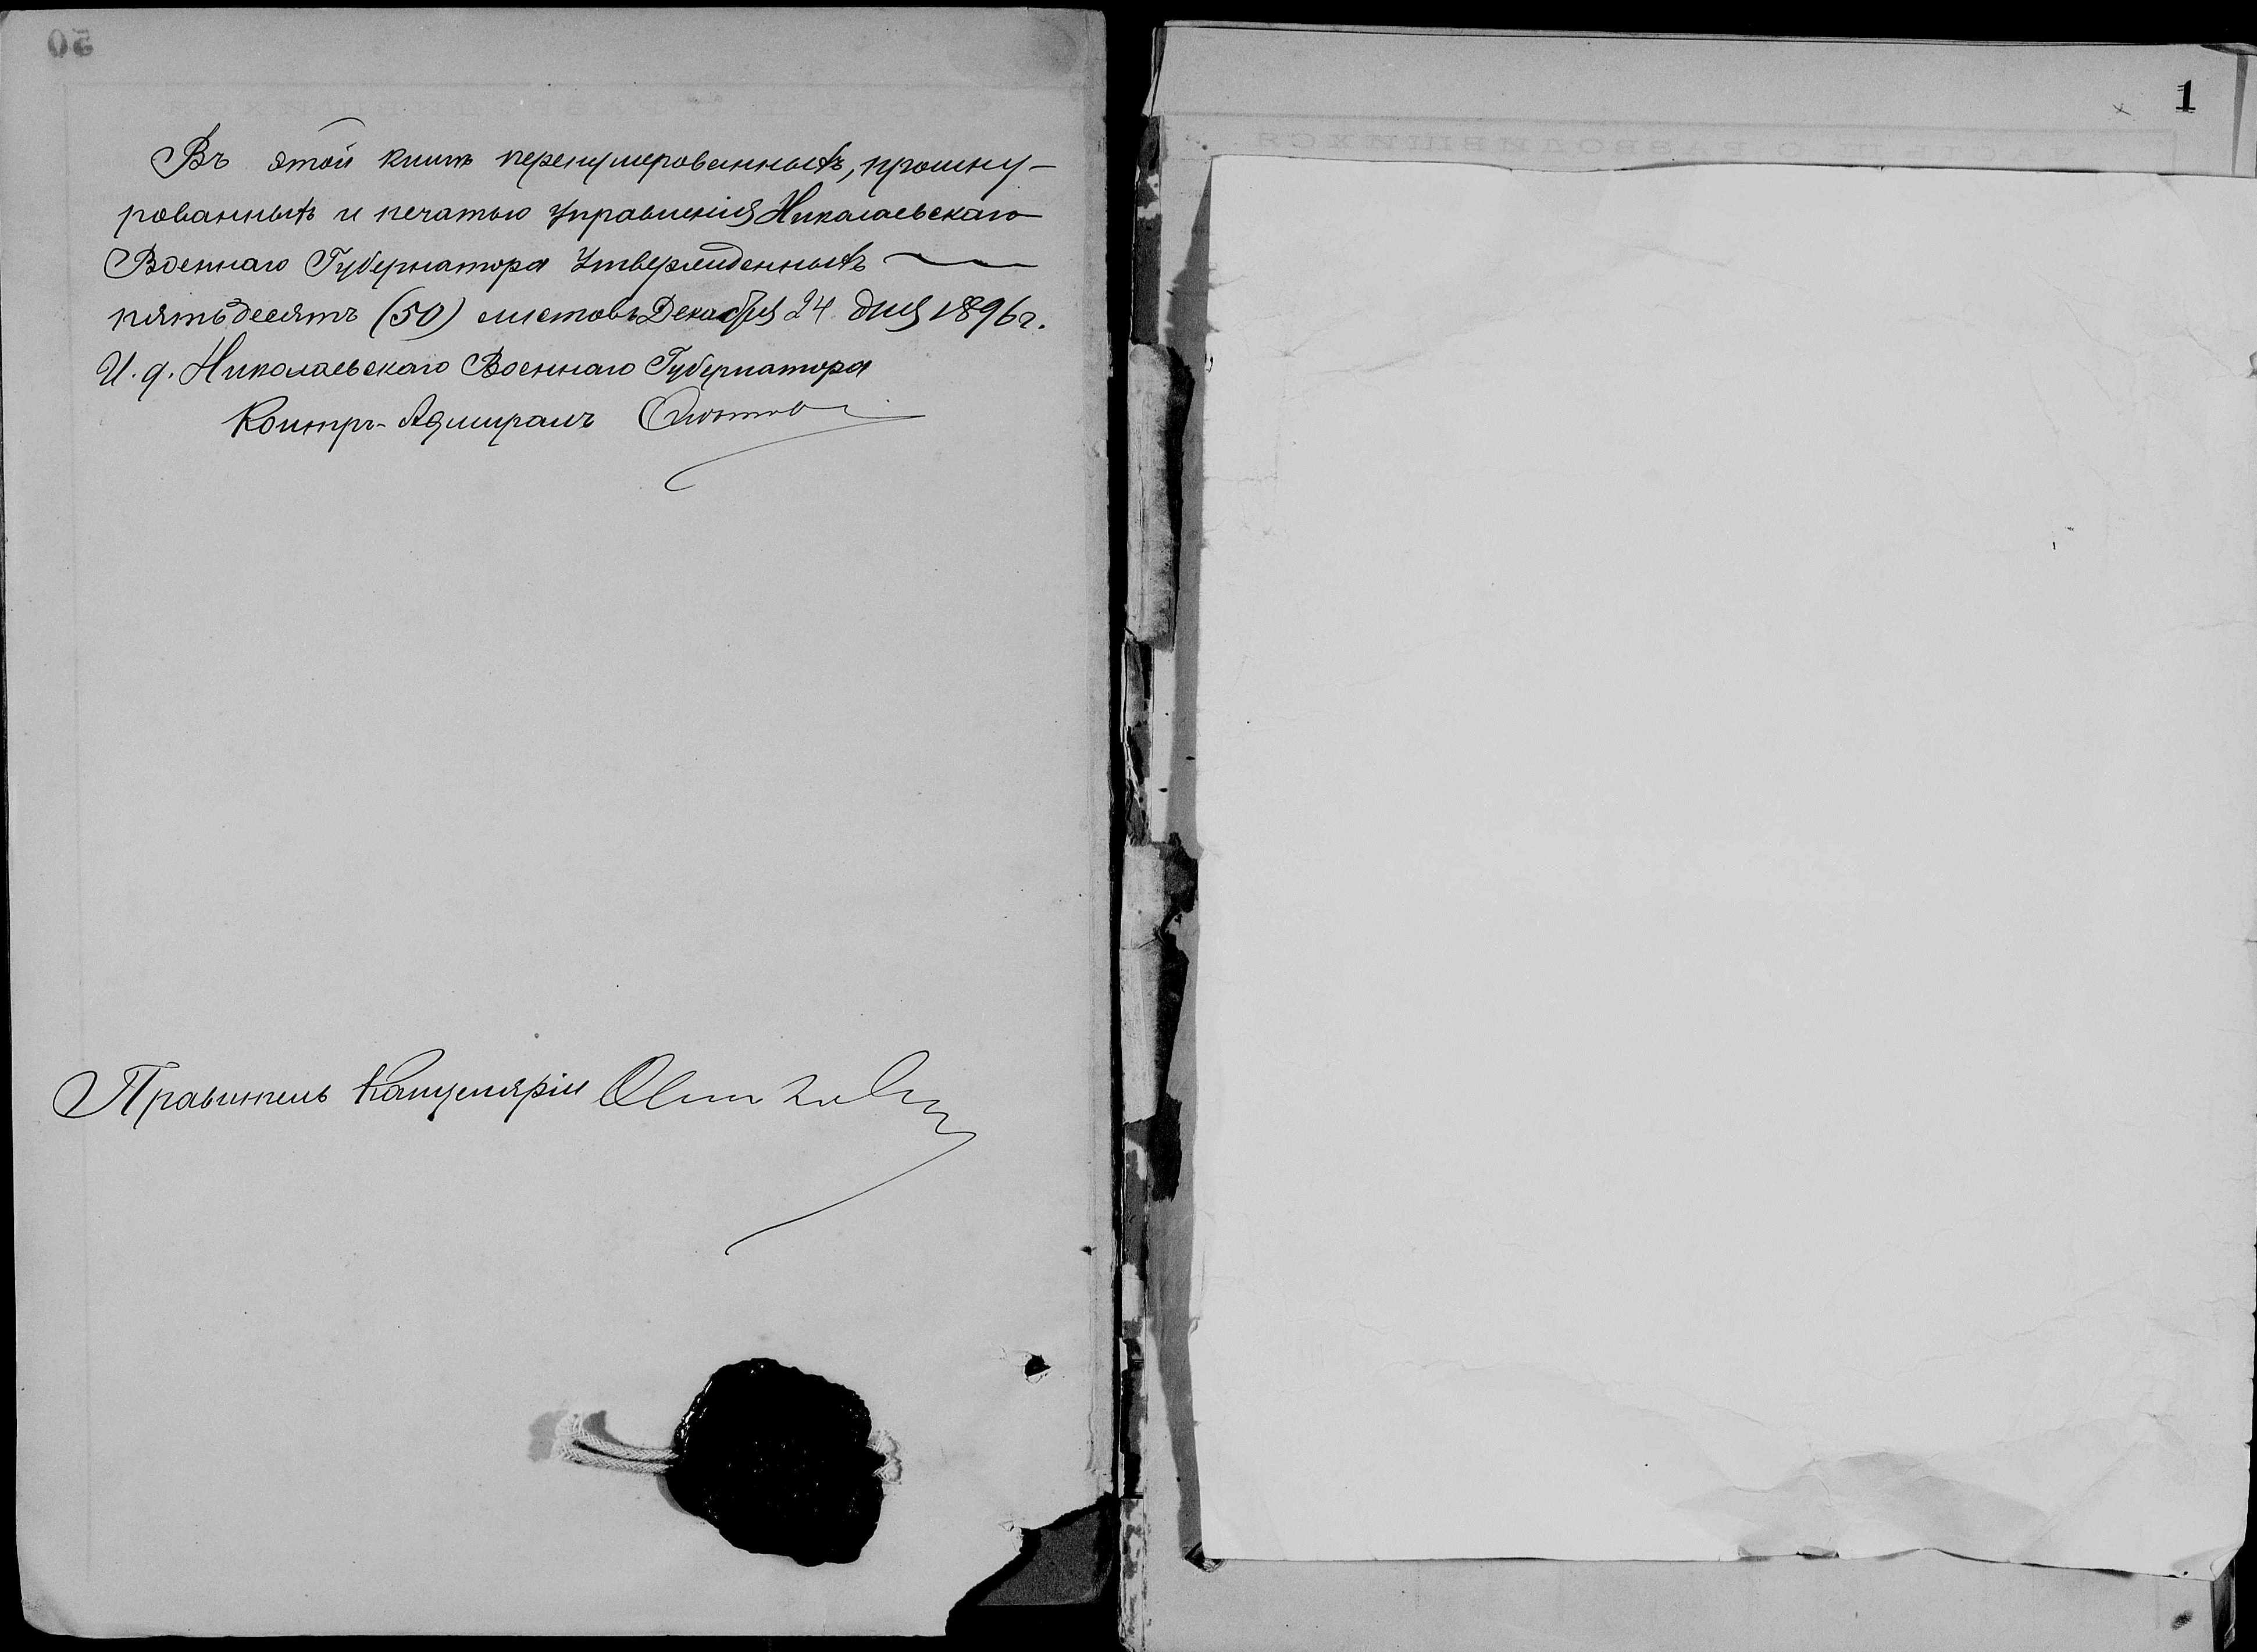 Въ этой книгѣ перенумерованныхъ, прошну-
рованныхъ и печатью Управленія Николаевскаго
Военнаго Губернатора Утвержденныхъ
пятьдесятъ (50) листовъ Декабря 24 дня 1896 г.
И. д. Николаевскаго Военнаго Губернатора
Контръ-Адмиралъ
Правитель Канцеляріи
50
1
ЧАСТЬ III, О РАЗВОДИВШИХСЯ